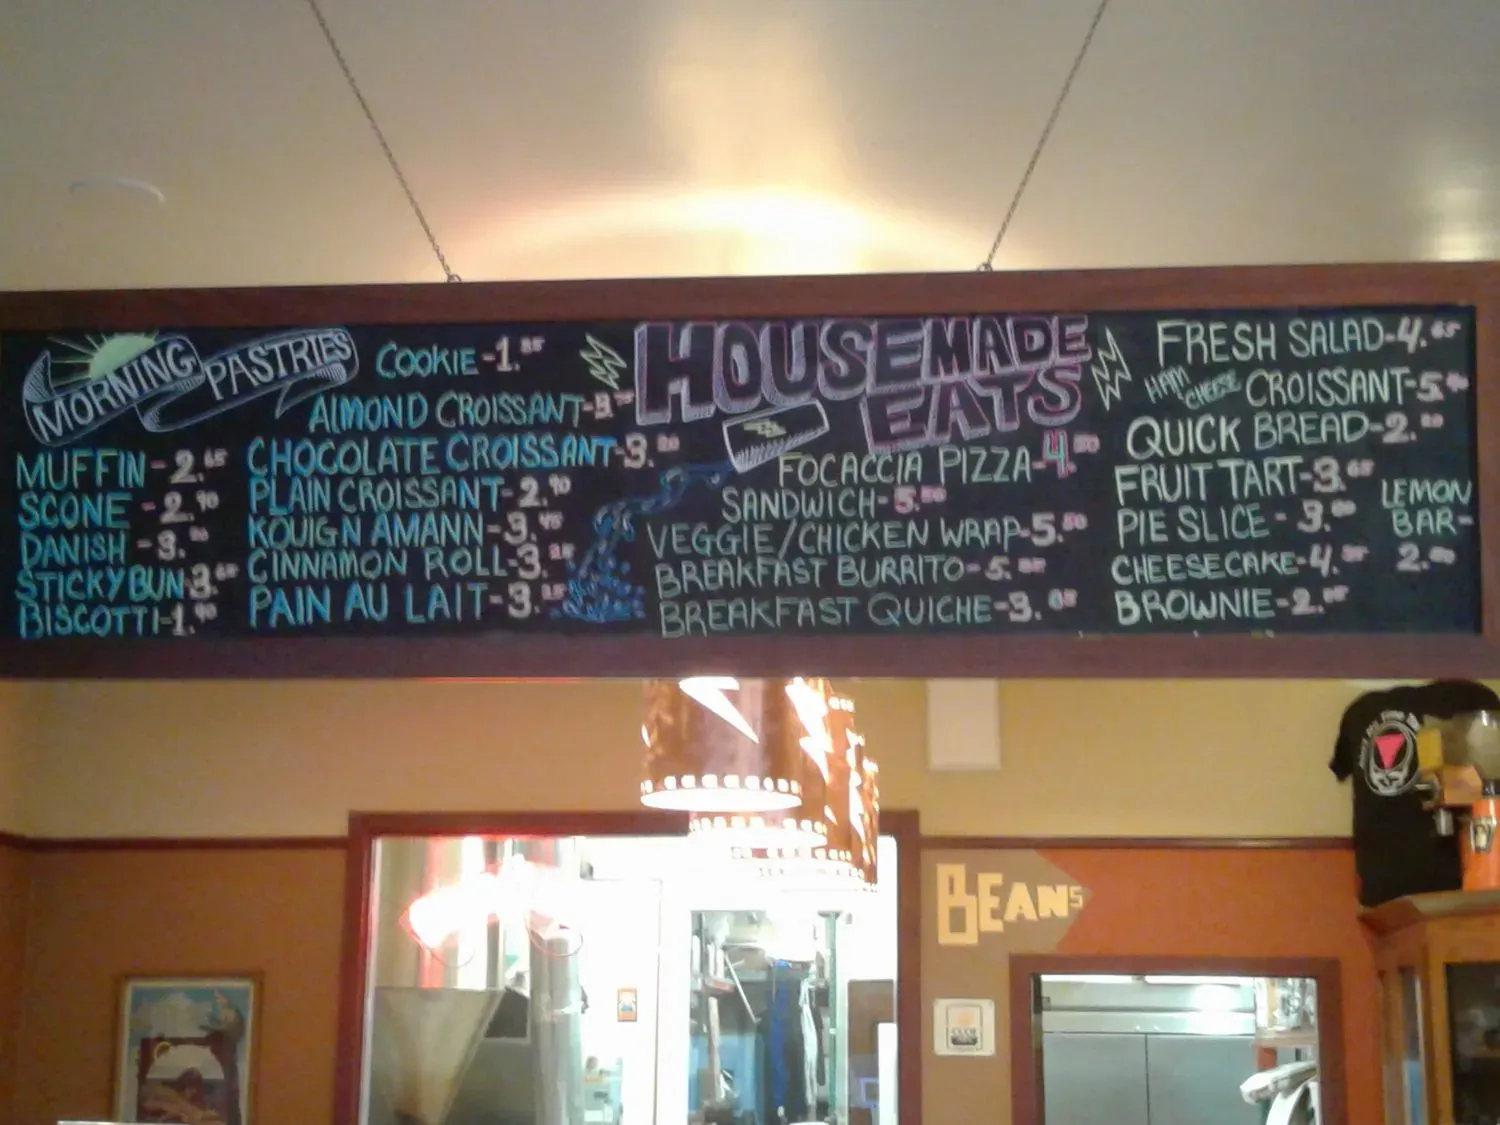 MORNING PASTRIES
MUFFIN - 2.65
SCONE - 2.90
DANISH - 3.
STICKY BUN - 3.65
BISCOTTI - 1.90
COOKIE - 1.
ALMOND CROISSANT - 3.
CHOCOLATE CROISSANT - 3.
PLAIN CROISSANT - 2.90
KOUIGN AMANN - 3.45
CINNAMON ROLL - 3.
PAIN AU LAIT - 3.
HOUSEMADE
EATS
FOCACCIA PIZZA - 4.50
SANDWICH - 5.50
VEGGIE/CHICKEN WRAP - 5.50
BREAKFAST BURRITO - 5.
BREAKFAST QUICHE - 3.
FRESH SALAD - 4.65
HAM CHEESE CROISSANT - 5.
QUICK BREAD - 2.
FRUIT TART - 3.65
PIE SLICE - 3.
CHEESECAKE - 4.
BROWNIE - 2.
LEMON
BAR -
2.
BEANS